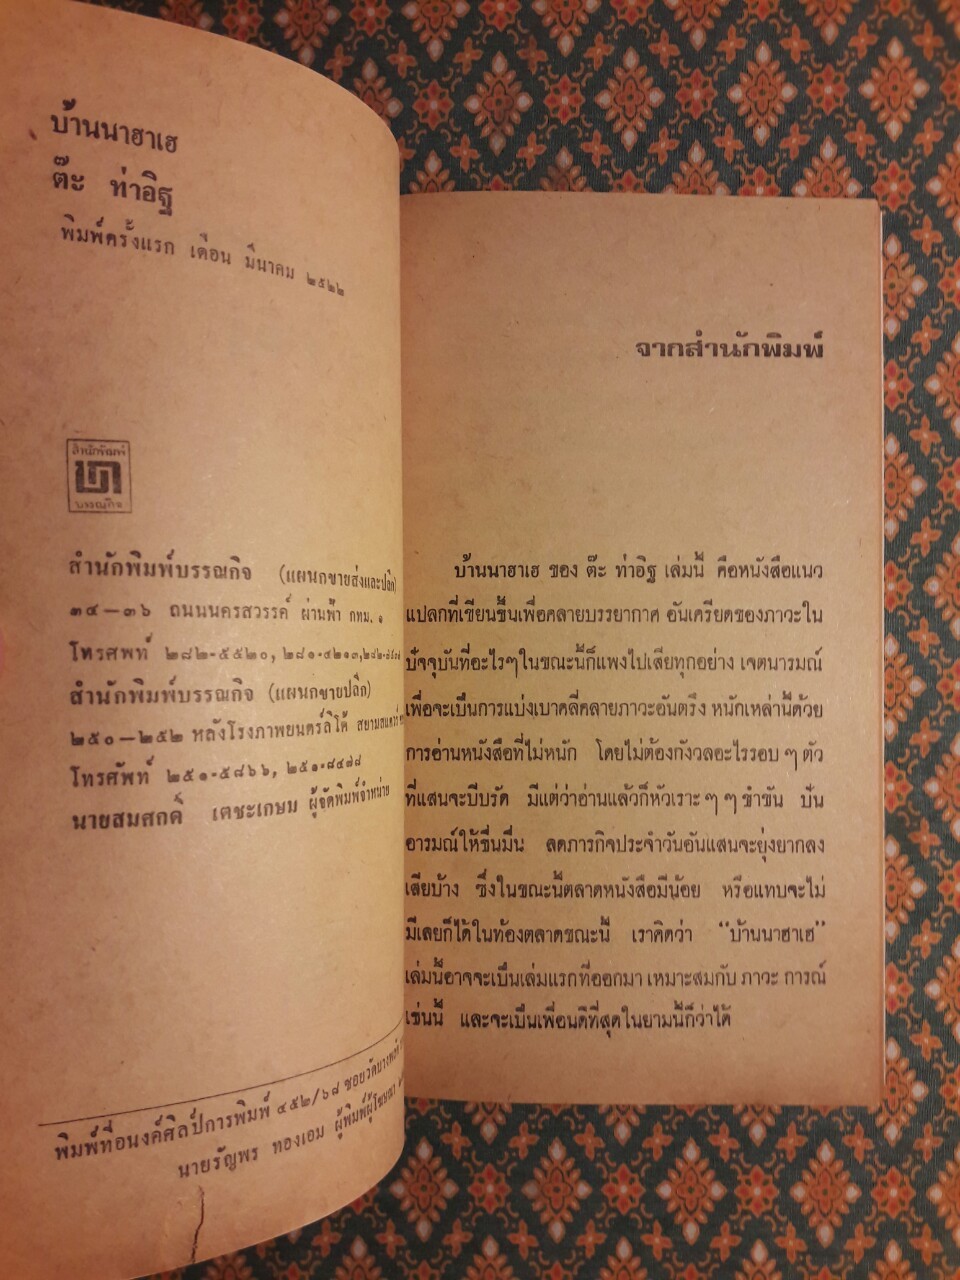 บ้านนาฮาเฮ
ต๊ะ ท่าอิฐ
พิมพ์ครั้งแรก เดือน มีนาคม ๒๕๒๒
สำนักพิมพ์
บรรณกิจ
สำนักพิมพ์บรรณกิจ (แผนกขายส่งและปลีก)
๓๔—๓๖ ถนนนครสวรรค์ ผ่านฟ้า กทม. ๑
โทรศพท์ ๒๘๒-๕๕๒๐, ๒๘๑-๔๒๑๓,
สำนักพิมพ์บรรณกิจ (แผนกขายปลีก)
๒๕๐—๒๕๒ หลังโรงภาพยนตร์ลิโด้ สยามสแควร์
โทรศัพท์ ๒๕๑-๕๘๖๖, ๒๕๑-๘๔๗๘
นายสมศกดิ์ เตชะเกษม ผู้จัดพิมพ์จำหน่าย
พิมพ์ที่อนงค์ศิลป์การพิมพ์ ๔๕๒/๖๘ ซอยวัดบางพลัด
นายรัญพร ทองเอม ผู้พิมพ์ผู้โฆษณา
จากสำนักพิมพ์
บ้านนาฮาเฮ ของ ต๊ะ ท่าอิฐ เล่มนี้ คือหนังสือแนว
แปลกที่เขียนขึ้นเพื่อคลายบรรยากาศ อันเครียดของภาวะใน
ปัจจุบันที่อะไรๆในขณะนี้ก็แพงไปเสียทุกอย่าง เจตนารมณ์
เพื่อจะเป็นการแบ่งเบาคลี่คลายภาวะอันตรึง หนักเหล่านี้ด้วย
การอ่านหนังสือที่ไม่หนัก โดยไม่ต้องกังวลอะไรรอบ ๆ ตัว
ที่แสนจะบีบรัด มีแต่ว่าอ่านแล้วก็หัวเราะ ๆ ๆ ขำขัน ปัน
อารมณ์ให้ชื่นมื่น ลดภารกิจประจำวันอันแสนจะยุ่งยากลง
เสียบ้าง ซึ่งในขณะนี้ตลาดหนังสือมีน้อย หรือแทบจะไม่
มีเลยก็ได้ในท้องตลาดขณะนี้ เราคิดว่า “บ้านนาฮาเฮ”
เล่มนี้อาจจะเป็นเล่มแรกที่ออกมา เหมาะสมกับ ภาวะ การณ์
เช่นนี้ และจะเป็นเพื่อนดีที่สุดในยามนี้ก็ว่าได้